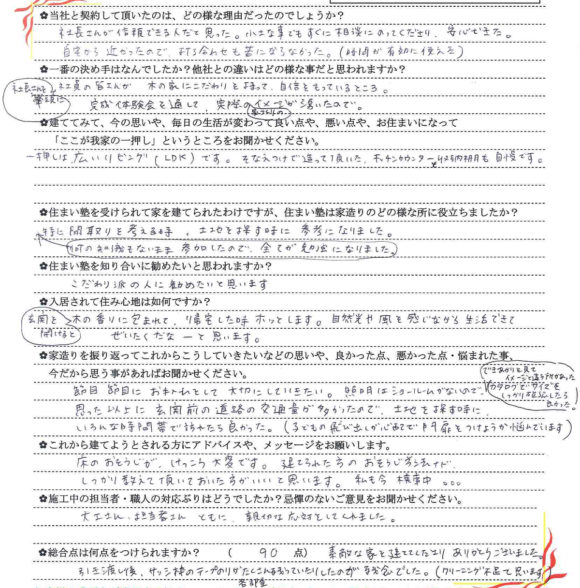 ✿当社と契約して頂いたのは、どの様な理由だったのでしょうか？
社長さんが信頼できる人だと思った。小さな事もすぐに相談にのってくださり、安心できた。
自宅から近かったので、打ち合わせも苦にならなかった。(時間が有効に使えた)
✿一番の決め手はなんでしたか？他社との違いはどの様な事だと思われますか？
社長さんと社員の皆さんが木の家にこだわりと誇って、自信をもっているところ。
完成体験会を通して、実際の家づくりのイメージが湧いたので。
✿建ててみて、今の思いや、毎日の生活が変わって良い点や、悪い点や、お住まいになって
「ここが我家の一押し」というところをお聞かせください。
一押しは広いリビング(LDK)です。そなえつけで造って頂いた、キッチンカウンター、収納棚も自慢です。
✿住まい塾を受けられて家を建てられたわけですが、住まい塾は家造りのどの様な所に役立ちましたか？
特に間取りを考える時、土地を探す時に参考になりました。
何の知識もないまま参加したので、全てが勉強になりました。
✿住まい塾を知り合いに勧めたいと思われますか？
こだわり派の人に勧めたいと思います
✿入居されて住み心地は如何ですか？
玄関を開けると木の香りに包まれて、帰宅した時ホッとします。自然光や風を感じながら生活できて
ぜいたくだなーと思います。
✿家造りを振り返ってこれからこうしていきたいなどの思いや、良かった点、悪かった点・悩まれた事、
今だから思う事があればお聞かせください。
節目節目にお手入れをして大切にしていきたい。照明はショールームがないので、
できあがりを見てイメージと違う所があった
カタログでサイズをしっかり確認したら良かった。
思った以上に玄関前の道路の交通量が多かったので、土地を探す時に、
いろんな時間帯で訪れたら良かった。(子どもの飛び出しが心配で門扉をつけようか悩んでいます)
✿これから建てようとされる方にアドバイスや、メッセージをお願いします。
床のおそうじが、けっこう大変です。建てられた方のおそうじ方法など、
しっかり教えて頂いておいた方がいいと思います。私も今模索中。。。
✿施工中の担当者・職人の対応ぶりはどうでしたか？忌憚のないご意見をお聞かせください。
大工さん、担当者さんともに、親切な対応をしてくれました。
✿総合点は何点をつけられますか？ ( 90 点) 素敵な家を建ててくださり ありがとうございました。
引き渡し後、サッシ枠のテープのりがたこにこれるっていたりしたのが残念でした。(クリーニング不足と思います)